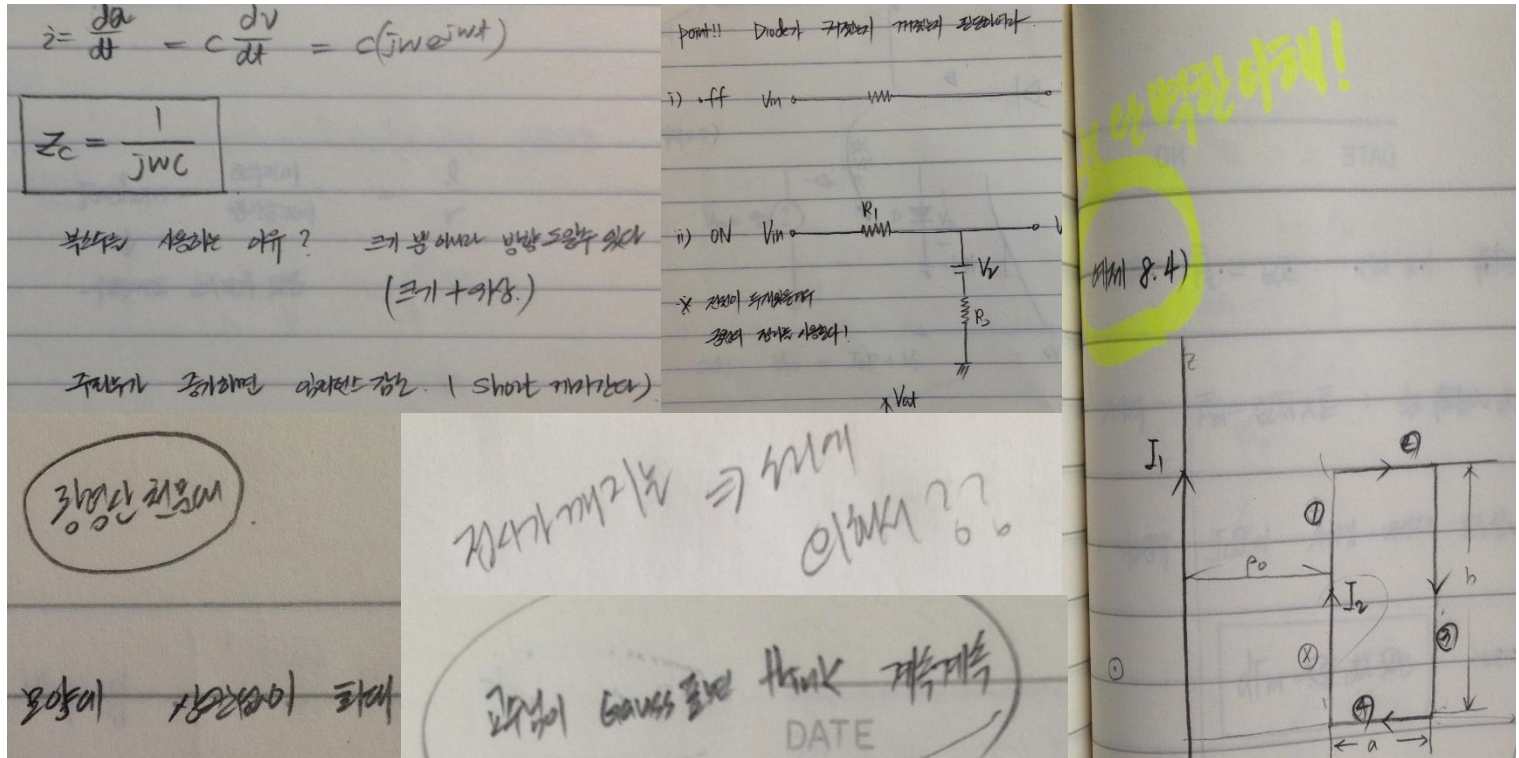 i = dQ/dt = C dv/dt = C(jwe^jwt)
Zc = 1/jwC
복소수를 사용하는 이유? 크기 뿐 아니라 방향도 알 수 있다
(크기 + 위상.)
주파수가 증가하면 임피던스 감소. ( short 게마간다)
point!! Diode가 켜졌는지 꺼졌는지 판단하여라.
i) off Vin
ii) ON Vin R1
V2
R2
※ 전원이 두개있을경우
중첩의 정리를 사용한다!
Vout
완벽한 이해!
예제 8.4)
z
I1
②
①
ρ0
I2
b
③
④
a
광명산 천문대
모양대 상관없이
접시가 깨지는 ⇒ 소리에
의해서 ??
교수님이 Gauss 풀면 think 계속계속
DATE